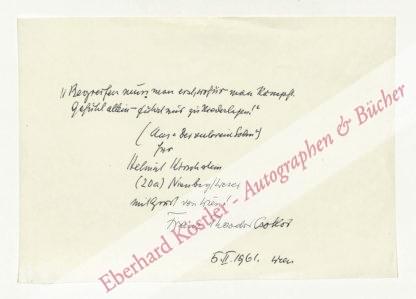 "Begreifen muss man erst wofür man kämpft.
Gefühl allein führt nur zu Niederlagen!"
(Aus "Der verlorene Sohn")
für
Helmut
(20a) Nienburg/Weser
mit Gruss von
Franz Theodor Csokor
5. II. 1961. Wien
Eberhard Köstler - Autographen & Bücher